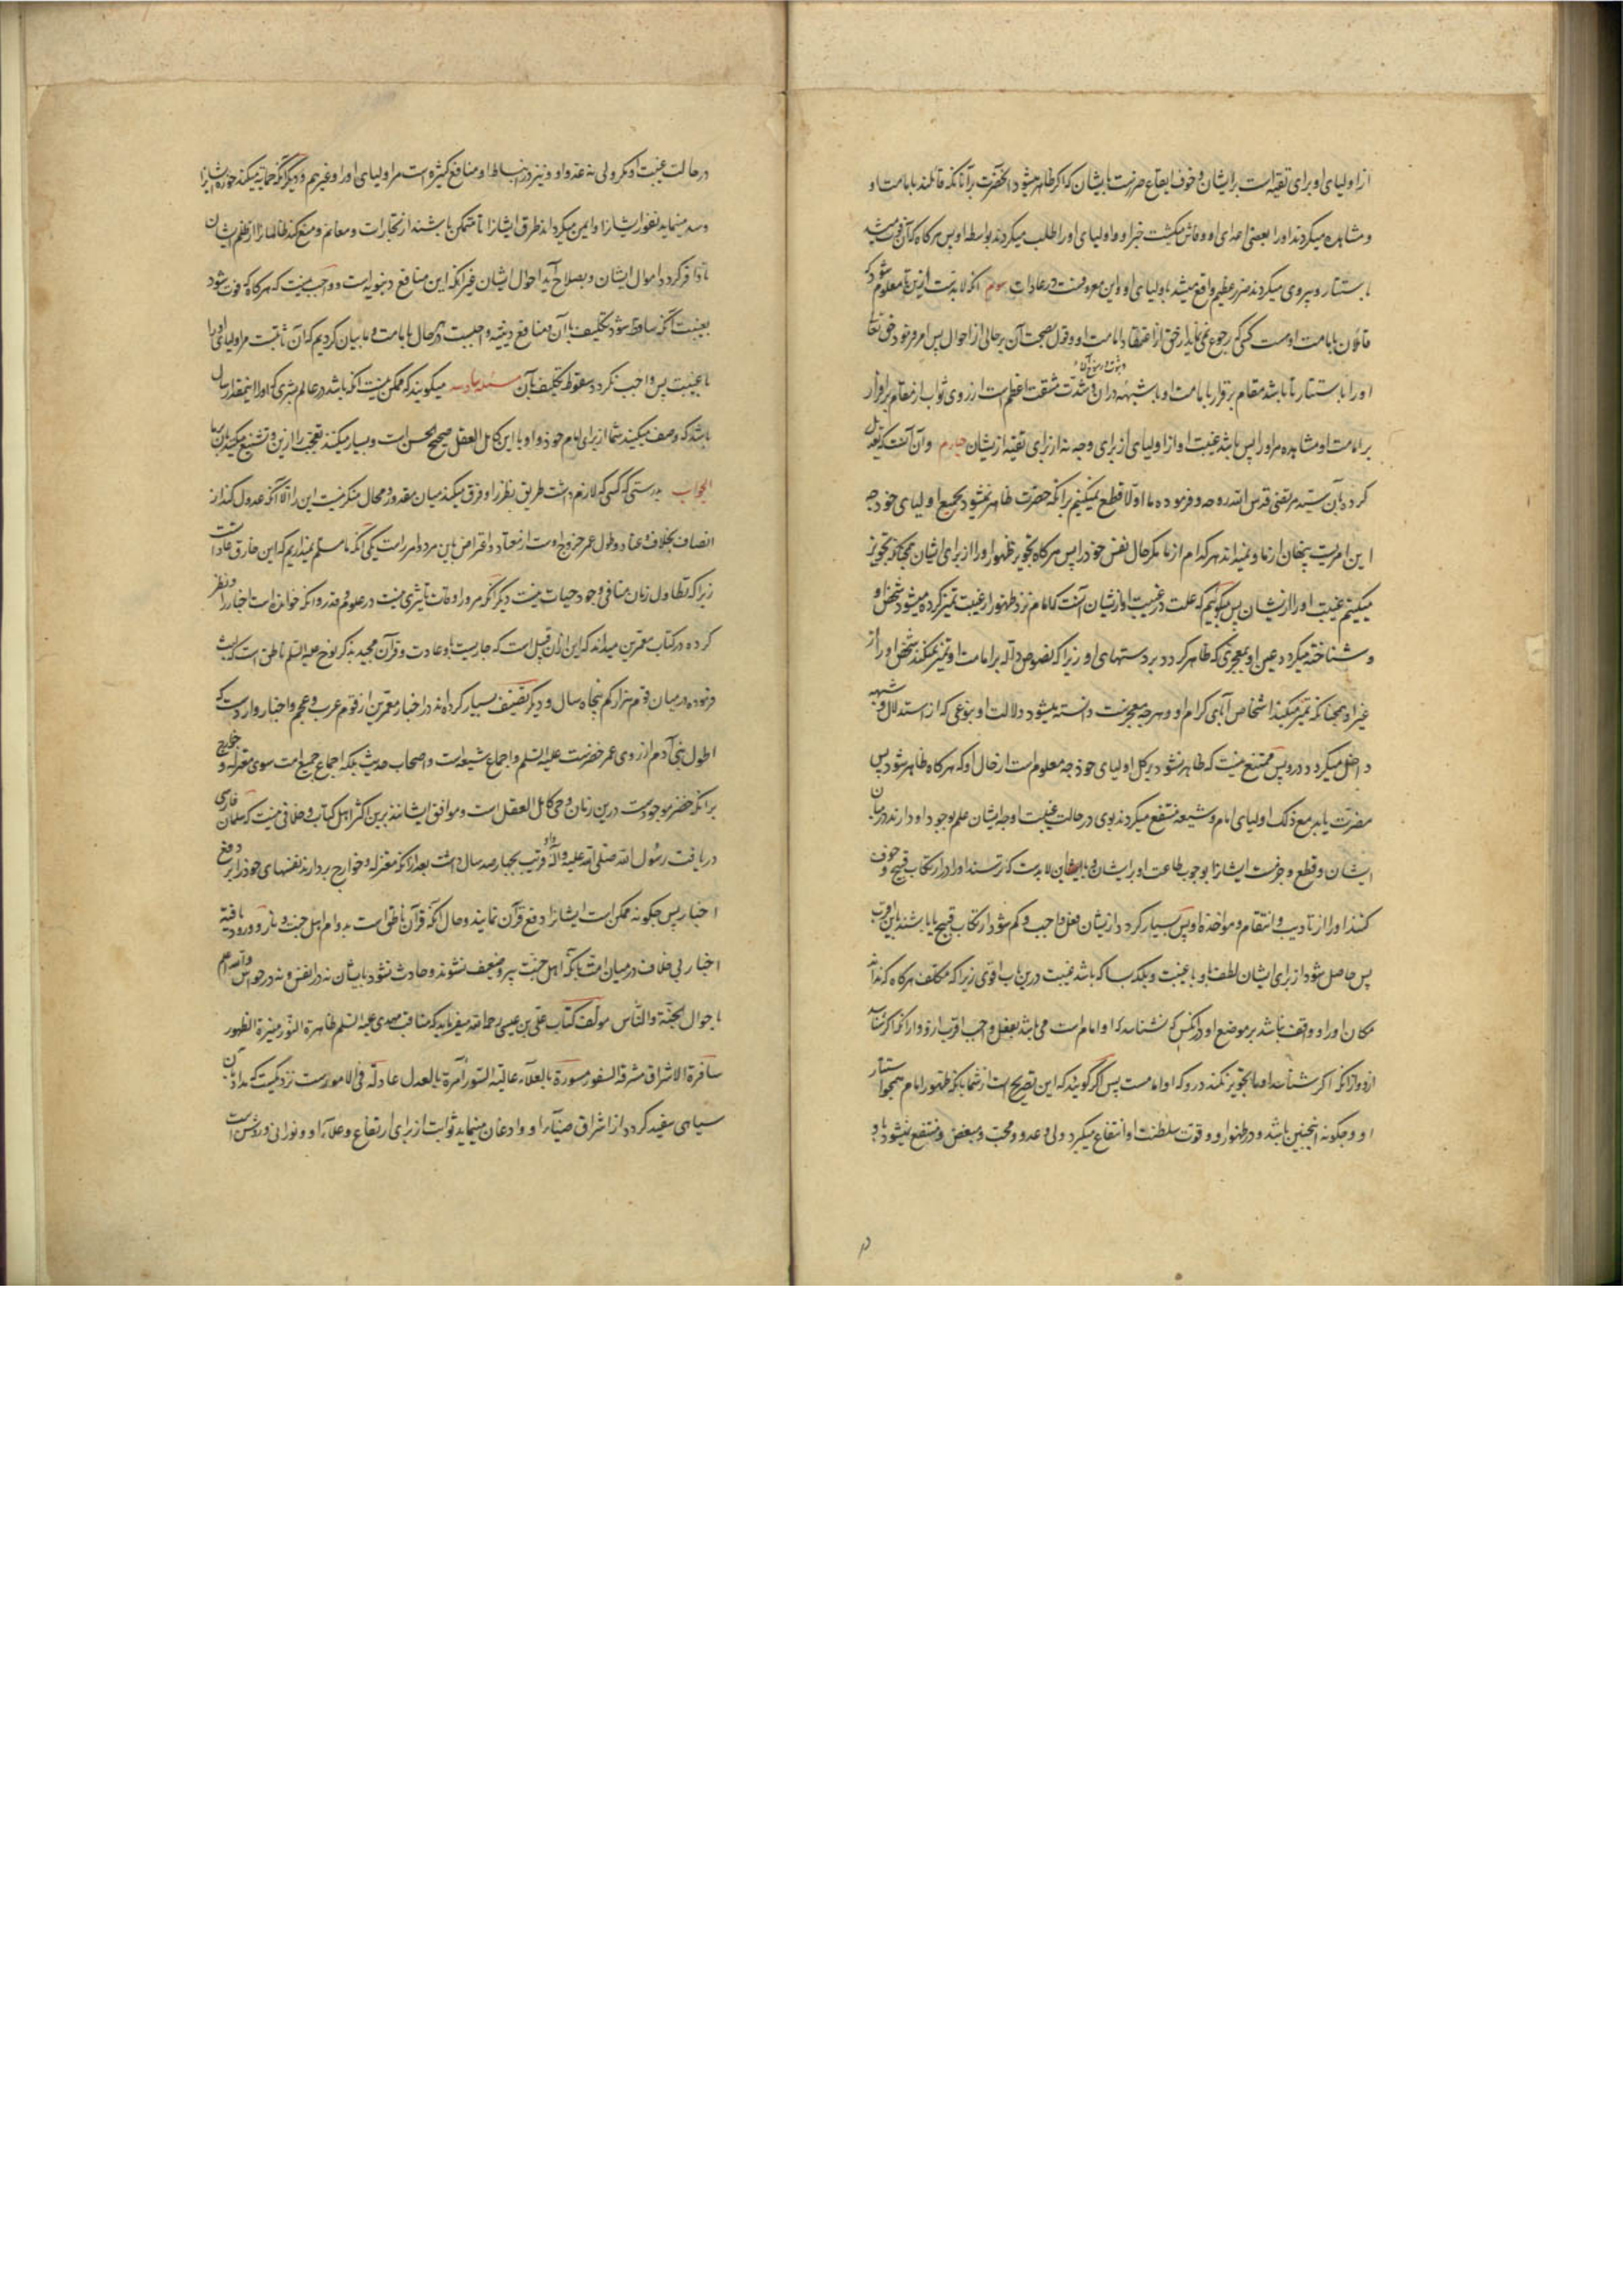 از اولیای او برای تقیه است بر ایشان و خوف ایقاع ضررست بایشان که اگر ظاهر میشود آنحضرت بر آنانکه قائلند بامامت او
و مشاهده میکردند او را بعضی اعدای او و فاش میکشت خبر او و اولیای او را طلب میکردند بواسطه او پس هرگاه که آن فوت میشد
باستتار و پیروی میکردند ضرر عظیم واقع میشد باولیای او و این معروفست در عادات سوم آنکه لابدست ازین تا معلوم شود که
قائلان بامامت اوست کسی که رجوع نمی نماید از حق از اعتقاد امامت او و قول بصحت آن بر حالی از احوال پس امر فرمود حق تعالی
او را باستتار تا باشد مقام بر اقرار بامامت او با شبهه در آن و شدت مشقت اعظم است از روی ثواب از مقام بر اقرار
بر امامت او مشاهده مر او را پس باشد غیبت او از اولیای از برای وجه نه از برای تقیه از یشان چهارم و آن آنست که تعویل
کرده بآن سید مرتضی قدس الله روحه و فرموده ما اولا قطع نمیکنیم بر آنکه حضرت ظاهر نمیشود بجمیع اولیای خود چه
این امریست پنهان از ما و نمیداند هر کدام از ما مگر حال نفس خود را پس هرگاه تجویز ظهور او را از برای ایشان همچنانکه تجویز
میکنیم غیبت او را از یشان پس میگوئیم که علت در غیبت او از یشان آنست که امام نزد ظهور از غیبت تمیز کرده میشود شخص او
و شناخته میگردد عین او بمعجزی که ظاهر گردد بر دستهای او زیرا که نصوص داله بر امامت او تمیز نمیکند شخص او را از
غیر او همچنانکه تمیز میکند اشخاص آبای کرام او و هر چه معجزست دانسته میشود دلالت او بنوعی که از استدلال و شبهه
داخل میگردد درو پس ممتنع نیست که ظاهر نشود بر کل اولیای خود چه معلوم است از حال او که هرگاه ظاهر شود پس
مضرت یابد مع ذلک اولیای امام و شیعه منتفع میگردند بوی در حالت غیبت او چه ایشان علم بوجود او دارند در میان
ایشان و قطع و جزمست ایشان را بوجوب طاعت او بر ایشان و ایشان لابدست که ترسند او را در ارتکاب قبیح و خوف
کنند او را از تادیب و انتقام و مؤاخذه او پس بسیار گردد از یشان فعل واجب و کم شود ارتکاب قبیح یا باشند باین اقرب
پس حاصل شود از برای ایشان لطف باو با غیبت و بلکه بسا که باشد غیبت درین باب اقوی زیرا که مکلف هرگاه که نداند
مکان او را و واقف نباشد بر موضع او در آنکس که نشناسد که او امام است می باشد بفعل واجب اقرب ازو دارا که اگر شناسد
ازو از آنکه اگر شناسد او را تجویز نکند درو که او امامست پس اگر گویند که این تصریح است از شما بآنکه ظهور امام همچو استتار
او و چگونه اینچنین باشد و در ظهور او و قوت سلطنت او انتفاع میگیرد ولی و عدو و محب و مبغض و منتفع نمیشود باو
در حالت غیبت او مگر ولی نه عدو او و نیز در انبساط او منافع کثیره است مر اولیای او را و غیرهم و دیگر آنکه حمایه میکند حوزه ایشان را
و سد مینماید ثغور ایشان را و ایمن میگرداند طرق ایشان را تا متمکن باشند از تجارات و مغانم و منع کند ظالمان را از ظلم یشان
تا وافر گردد اموال ایشان و بصلاح آید احوال ایشان غیر آنکه این منافع دنیویه است و واجب نیست که هرگاه که فوت شود
بغیبت آنکه ساقط شود تکلیف با آن و منافع دینیه واجبست در هر حال بامامت و ما بیان کردیم که آن ثابتست مر اولیای او را
با غیبت پس واجب نگردد سقوط تکلیف بآن مسئله سادسه میگویند که ممکن نیست آنکه باشد در عالم بشری که او را اینمقدار سال
باشد که وصف میکنید شما از برای امام خود و او با این کامل العقل صحیح الحس است و بسیار میکنند تعجب را ازین و تشنیع میکنند بآن بر ما
الجواب بدرستی که کسی که لازم داشت طریق نظر را و فرق میکند میان مقدور و محال منکر نیست این را الا آنکه عدول کند از
انصاف بخلاف و عناد و طول عمر خروج اوست از معتاد و اعتراض باین مردود امرراست یکی آنکه ما مسلم نمیداریم که این خارق عادات است
زیرا که تطاول زمان منافی وجود حیات نیست دیگر آنکه مرور اوقات تأثیری نیست در علوم و قدر و آنکه خوانده است اخبار را و نظر
کرده در کتاب معمرین میداند که این ازان قبیل است که جاریست باو عادت و قرآن مجید بذکر نوح علیه السلم ناطق است که لبث
فرموده در میان قوم هزار کم پنجاه سال و دیگر تصنیف بسیار کرده اند در اخبار معمرین از قوم عرب و عجم و اخبار واردست که
اطول بنی آدم از روی عمر خضرست علیه السلم و اجماع شیعه است و اصحاب حدیث بلکه اجماع جمیع امت سوی معتزله و خوارج
بر آنکه خضر موجودست درین زمان و حی کامل العقل است و موافق ایشانند برین اکثر اهل کتاب و خلافی نیست که سلمان فارسی
دریافت رسول الله صلی الله علیه و آله و او قریب بچهارصد سال داشت بعد ازانکه معتزله و خوارج بردارند نفسهای خود را بر دفع
اخبار پس چگونه ممکن است ایشان را دفع قرآن نمایند و حال آنکه قرآن ناطق است بدوام اهل جنت و نار و ورود یافته
اخبار بی خلاف در میان امت بآنکه اهل جنت پیر و ضعیف نشوند و حادث نشود بایشان نه در انفس و نه در حواس والله اعلم
باحوال الجنة والناس مولف کتاب علی بن عیسی رحمه الله میفرماید که مناقب مهدی علیه السلم ظاهرة النور منیرة الظهور
سافرة الاشراق مشرقة السفور مسورة بالعلاء عالیة السور آمرة بالعدل عادلة فی الامورست نزدیکست که مداد آن
سیاهی سفید گردد از اشراق ضیاء او و اذعان مینماید ثوابت از برای ارتفاع و علاء او و نورانی و روشن است